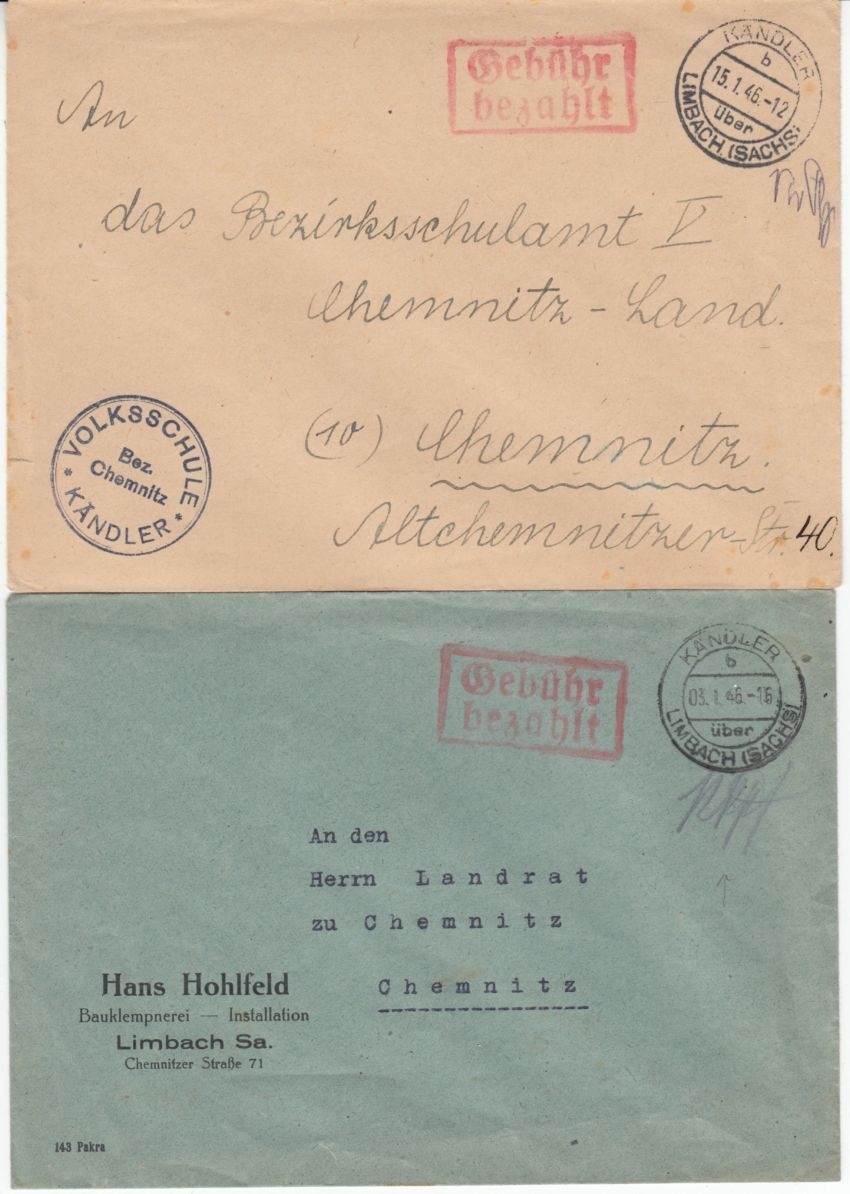 Gebühr
bezahlt
KÄNDLER
b
15.1.46.-12
über
LIMBACH (SACHS)
An
das Bezirksschulamt V
Chemnitz-Land.
(10) Chemnitz.
Altchemnitzer-Str. 40.
VOLKSSCHULE
Bez.
Chemnitz
* KÄNDLER *
Gebühr
bezahlt
KÄNDLER
b
03.1.46.-16
über
LIMBACH (SACHS)
An den
Herrn Landrat
zu Chemnitz
Chemnitz
Hans Hohlfeld
Bauklempnerei — Installation
Limbach Sa.
Chemnitzer Straße 71
143 Pakra